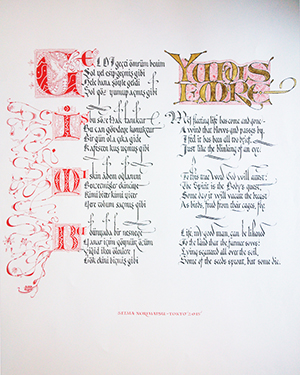 GELDİ geçti ömrüm benim
Şol yel esip geçmiş gibi
Hele bana şöyle geldi
Şol göz yumup açmış gibi
İşbu söze Hak tanıktır
Bu can gövdeye konuktur
Bir gün ola çıka gide
Kafesten kuş uçmuş gibi
Miskin adem oğlanını
Benzetmişler ekinciye
Kimi biter kimi yiter
Yere tohum saçmış gibi
Bu dünyada bir nesneye
Yanar içim göynür özüm
Yiğit iken ölenlere
Gök ekini biçmiş gibi
YUNUS
EMRE
My fleeting life has come and gone
A wind that blows and passes by.
I feel it has been all too brief,
Just like the blinking of an eye.
To this true word God will attest:
The Spirit is the Body's guest;
Some day it will vacate the breast
As birds, freed from their cages, fly.
Life, my good man, can be likened
To the land that the farmer sows:
Lying scattered all over the soil,
Some of the seeds sprout, but some die.